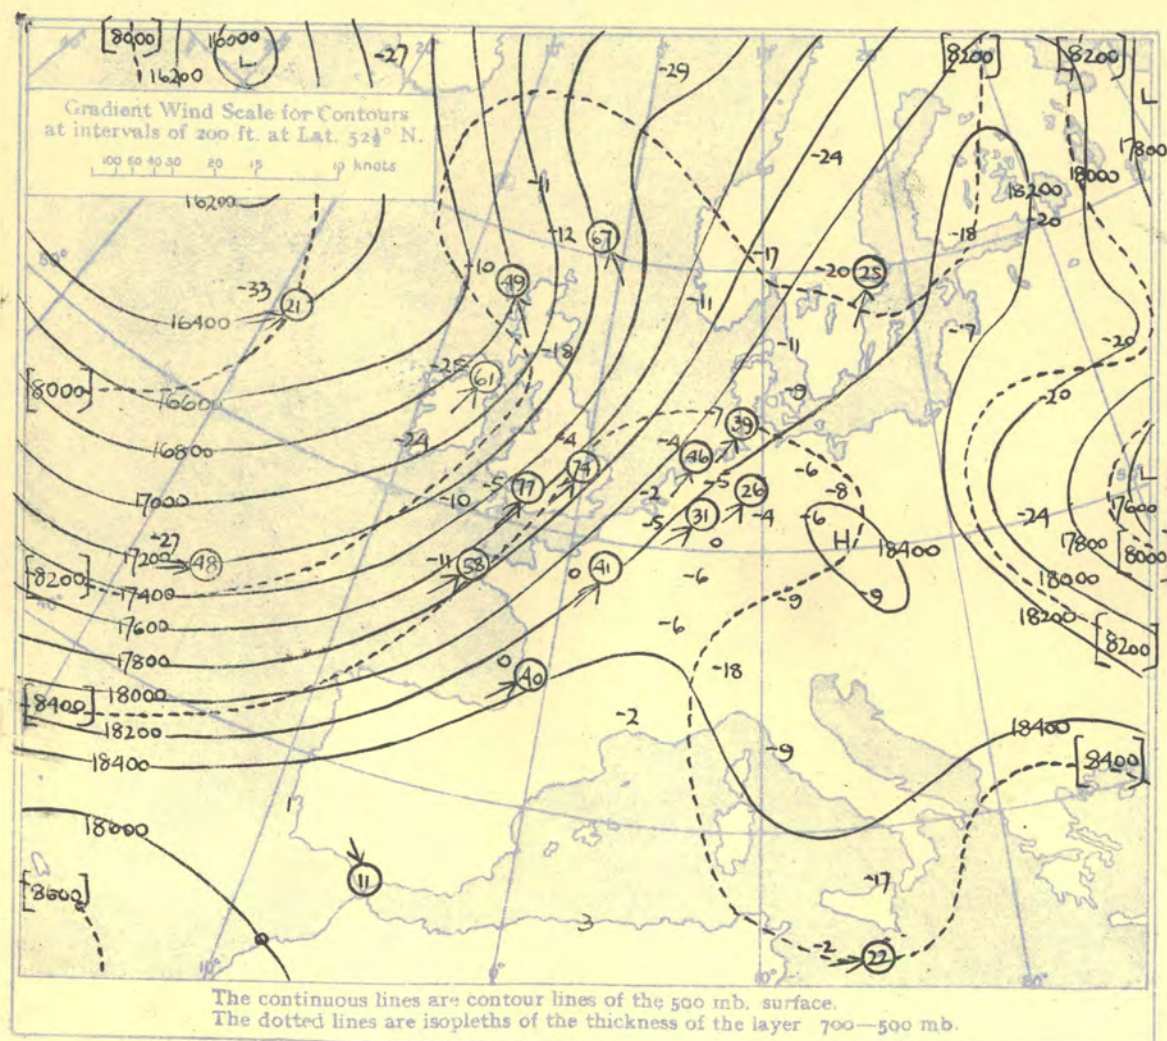 [8000]
16000
L
-27
20°
10°
0°
-29
10°
20°
[8200]
[8200]
L
16200
Gradient Wind Scale for Contours
at intervals of 200 ft. at Lat. 52½° N.
100 60 40 30 20 15 10 knots
16200
-11
-24
17800
18000
18200
-20
-12
67
-17
-18
-10
49
-20
25
-33
21
16400
-11
-7
-20
-18
-11
[8000]
16600
-25
61
-9
-20
16800
-24
-4
7
39
74
-4
46
-6
L
17000
-10
-5
77
-2
-5
26
-8
7600
-27
-5
31
-4
-6
-24
17200
48
0
H
18400
17800
[8000]
[8200]
17400
-11
58
0
41
-6
-9
-9
18000
17600
-6
18200
[8200]
17800
0
40
-18
[8400]
18000
18200
-2
18400
18400
-9
[8400]
18600
[8600]
11
-17
3
-2
22
10°
0°
10°
20°
The continuous lines are contour lines of the 500 mb. surface.
The dotted lines are isopleths of the thickness of the layer 700—500 mb.